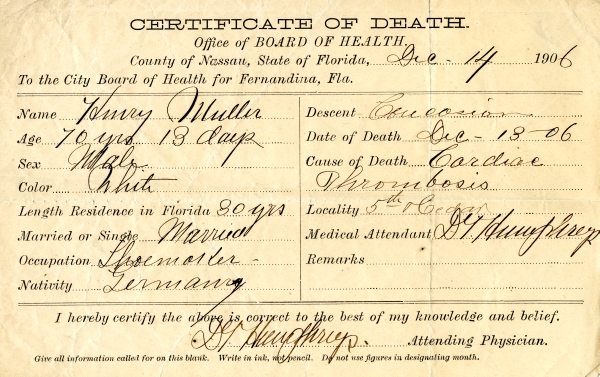 CERTIFICATE OF DEATH.
Office of BOARD OF HEALTH.
County of Nassau, State of Florida, Dec - 14 1906
To the City Board of Health for Fernandina, Fla.
Name Henry Muller
Age 70 yrs 13 days
Sex Male
Color White
Length Residence in Florida 30 yrs
Married or Single Married
Occupation Shoemaker
Nativity Germany
Descent Caucasian
Date of Death Dec - 13 - 06
Cause of Death Cardiac
Thrombosis
Locality 5th & Cedar
Medical Attendant Humphreys
Remarks
I hereby certify the above is correct to the best of my knowledge and belief.
Humphreys. Attending Physician.
Give all information called for on this blank. Write in ink, not pencil. Do not use figures in designating month.